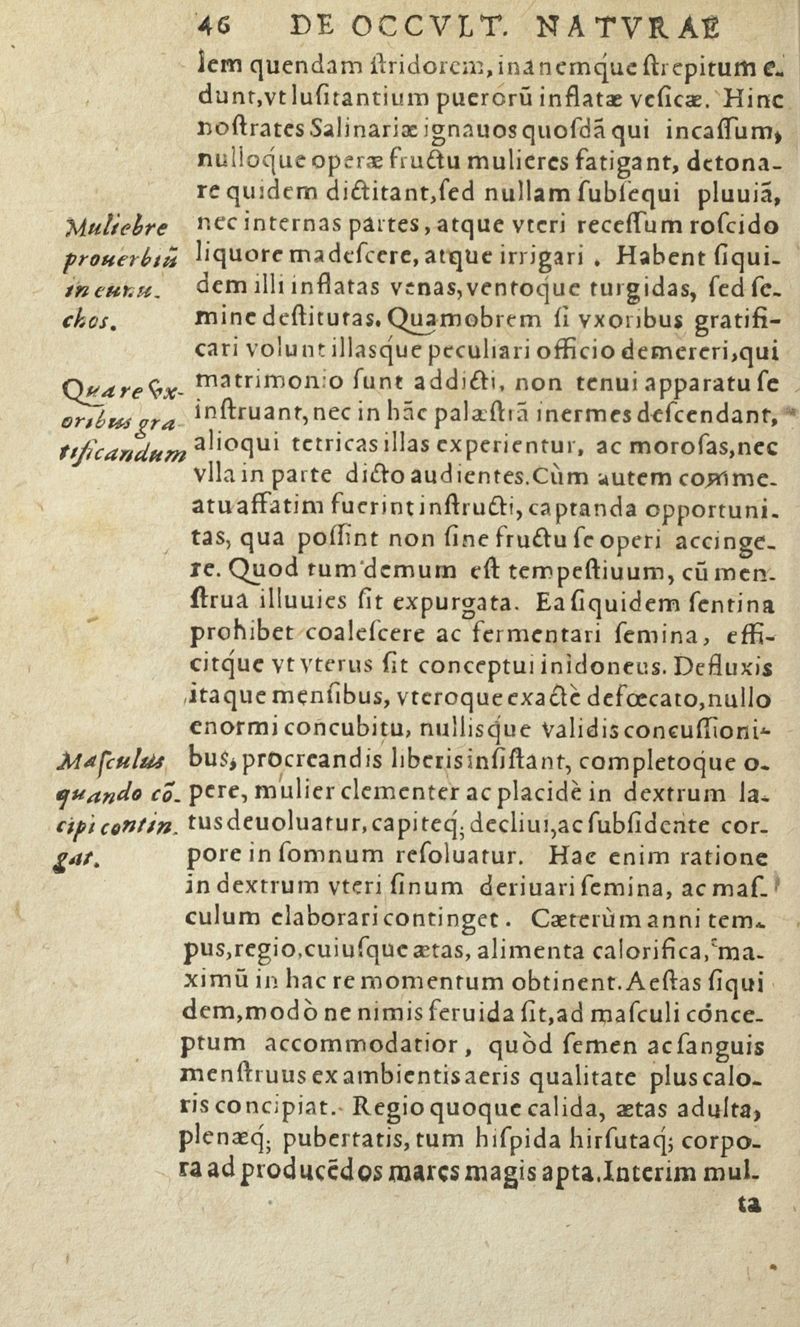 46 DE OCCVLT. NATVRAE
lem quendam ſtridorem, inanemque ſtrepitum e-
dunt, vt luſitantium puerorū inflatæ veſicæ. Hinc
noſtrates Salinariæ ignauos quoſdã qui incaſſum,
nulloque operæ fructu mulieres fatigant, detona-
re quidem dictitant, ſed nullam ſubſequi pluuiã,
Muliebre
nec internas partes, atque vteri receſſum roſcido
prouerbiũ
liquore madeſcere, atque irrigari. Habent ſiqui-
in eunu-
dem illi inflatas venas, ventoque turgidas, ſed ſe-
chos.
mine deſtitutas. Quamobrem ſi vxoribus gratifi-
cari volunt illasque peculiari officio demereri, qui
Quare vx-
matrimonio ſunt addicti, non tenui apparatu ſe
oribus gra
inſtruant, nec in hãc palæſtrã inermes deſcendant,
tificandum
alioqui tetricas illas experientur, ac moroſas, nec
vlla in parte dicto audientes. Cùm autem comme-
atu affatim fuerint inſtructi, captanda opportuni-
tas, qua poſſint non ſine fructu ſe operi accinge-
re. Quod tum demum eſt tempeſtiuum, cũ men-
ſtrua illuuies ſit expurgata. Ea ſiquidem ſentina
prohibet coaleſcere ac fermentari ſemina, effi-
citque vt vterus ſit conceptui inidoneus. Defluxis
itaque menſibus, vteroque exactè defœcato, nullo
enormi concubitu, nullisque validis concuſſioni-
Maſculus
bus, procreandis liberis inſiſtant, completoque o-
quando cõ-
pere, mulier clementer ac placidè in dextrum la-
cipi contin-
tus deuoluatur, capiteq; decliui, ac ſubſidente cor-
gat.
pore in ſomnum reſoluatur. Hac enim ratione
in dextrum vteri ſinum deriuari ſemina, ac maſ-
culum elaborari continget. Cæterùm anni tem-
pus, regio, cuiuſque ætas, alimenta calorifica, ma-
ximũ in hac re momentum obtinent. Aeſtas ſiqui
dem, modò ne nimis feruida ſit, ad maſculi conce-
ptum accommodatior, quòd ſemen ac ſanguis
menſtruus ex ambientis aeris qualitate plus calo-
ris concipiat. Regio quoque calida, ætas adulta,
plenæq; pubertatis, tum hiſpida hirſutaq; corpo-
ra ad producẽdos mares magis apta. Interim mul-
ta